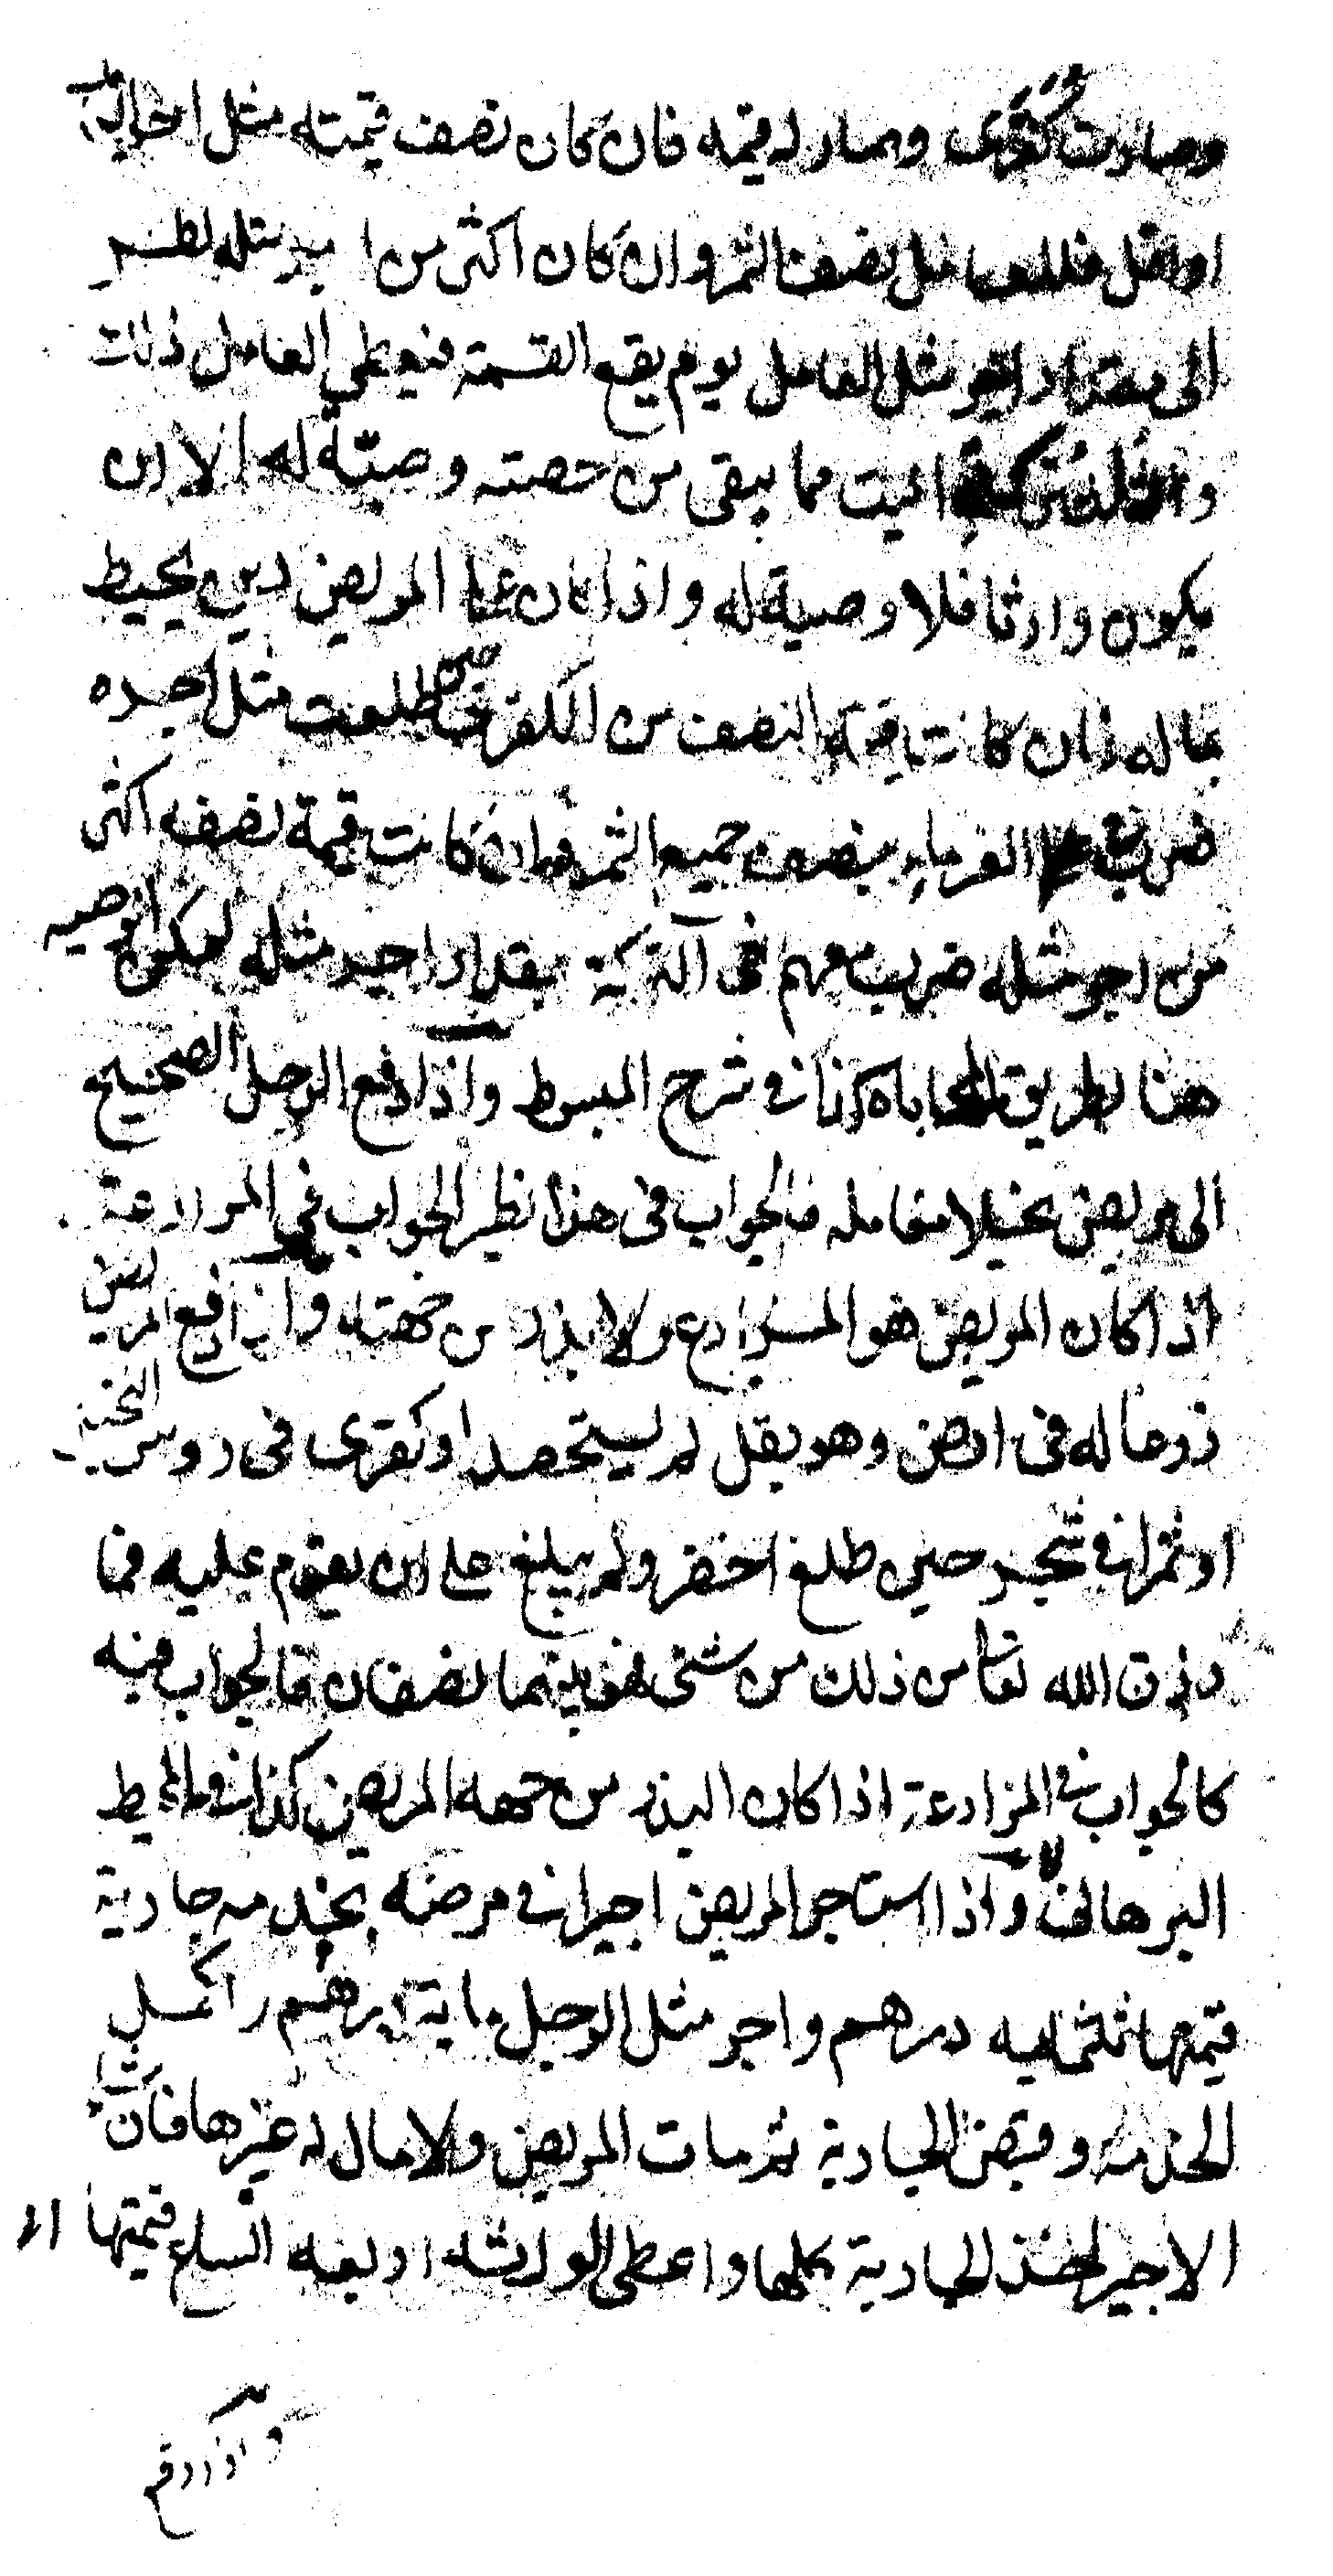 وصارت كفرى وصار له قيمه فان كان نصف قيمته مثل اجر
او اقل فللعامل نصف الثمر وان كان اكثر من اجر مثله ينظر
الى مقدار اجر مثل العامل يوم يقع القسمة فيعطي العامل ذلك
وثلث تركة الميت مما يبقى من حصته وصية له الا ان
يكون وارثا فلا وصية له واذا كان على المريض دين يحيط
بماله فان كانت قيمة النصف من الكفرى حين طلعت مثل اجره
ضرب مع الغرماء بنصف جميع الثمر وان كانت قيمة نصفه اكثر
من اجر مثله ضرب معهم في التركة بمقدار اجر مثله لمكان الوصيه
هنا بطريق المحاباه كذا في شرح المبسوط واذا دفع الرجل الصحيح
الى مريض نخيلا معامله فالجواب في هذا نظير الجواب في المزارعة
اذا كان المريض هو المزارع ولا بذر من جهته واذا دفع المريض
زرعا له في ارض وهو بقل لم يستحصد او كفرى في روس النخيل
او ثمرا في شجر حين طلع اخضر ولم يبلغ على ان يقوم عليه فما
رزق الله تعا من ذلك من شئ فهو بينهما نصفان فالجواب فيه
كالجواب في المزارعة اذا كان البذر من جهه المريض كذا في المحيط
البرهاني واذا استاجر المريض اجيرا في مرضه يخدمه جارية
قيمتها ثلثمايه درهم واجر مثل الرجل ماية درهم واكمل
الخدمه وقبض الجارية ثم مات المريض ولا مال له غيرها فان شا
الاجير اخذ الجارية كلها واعطى الورثه اربعه اتساع قيمتها
واذا دفع